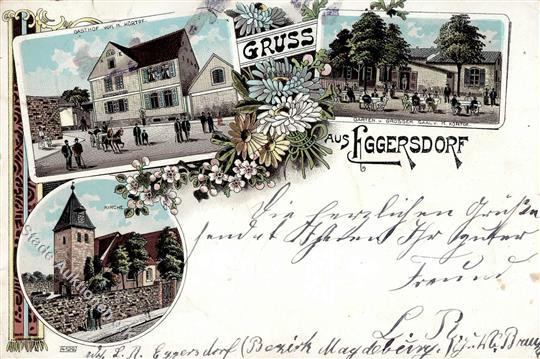 GASTHOF VON H. KÖRTGE.
GRUSS
AUS EGGERSDORF
GARTEN U. GROSSER SAAL V. H. KÖRTGE
KIRCHE
Die herzlichen Grüße
sendet Ihnen Ihr guter
Freund
L. R.
L. R. Eggersdorf (Bezirk Magdeburg,